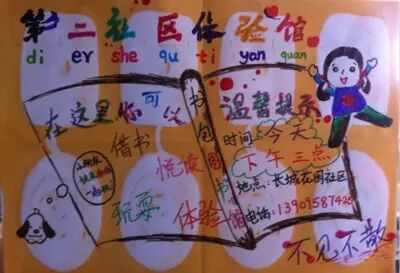 第二社区体验馆
di er she qu ti yan guan
在这里你可以
借书
悦读
玩耍
体验
书包图书馆
温馨提示
时间：今天
下午三点
地点：长城花园社区
电话：13909587425
不见不散